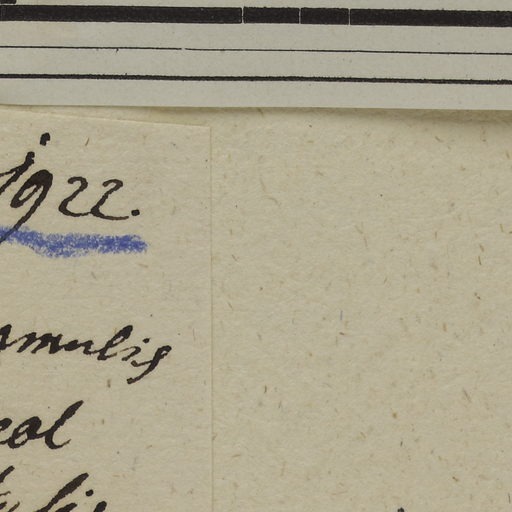 1922.
amulis
col